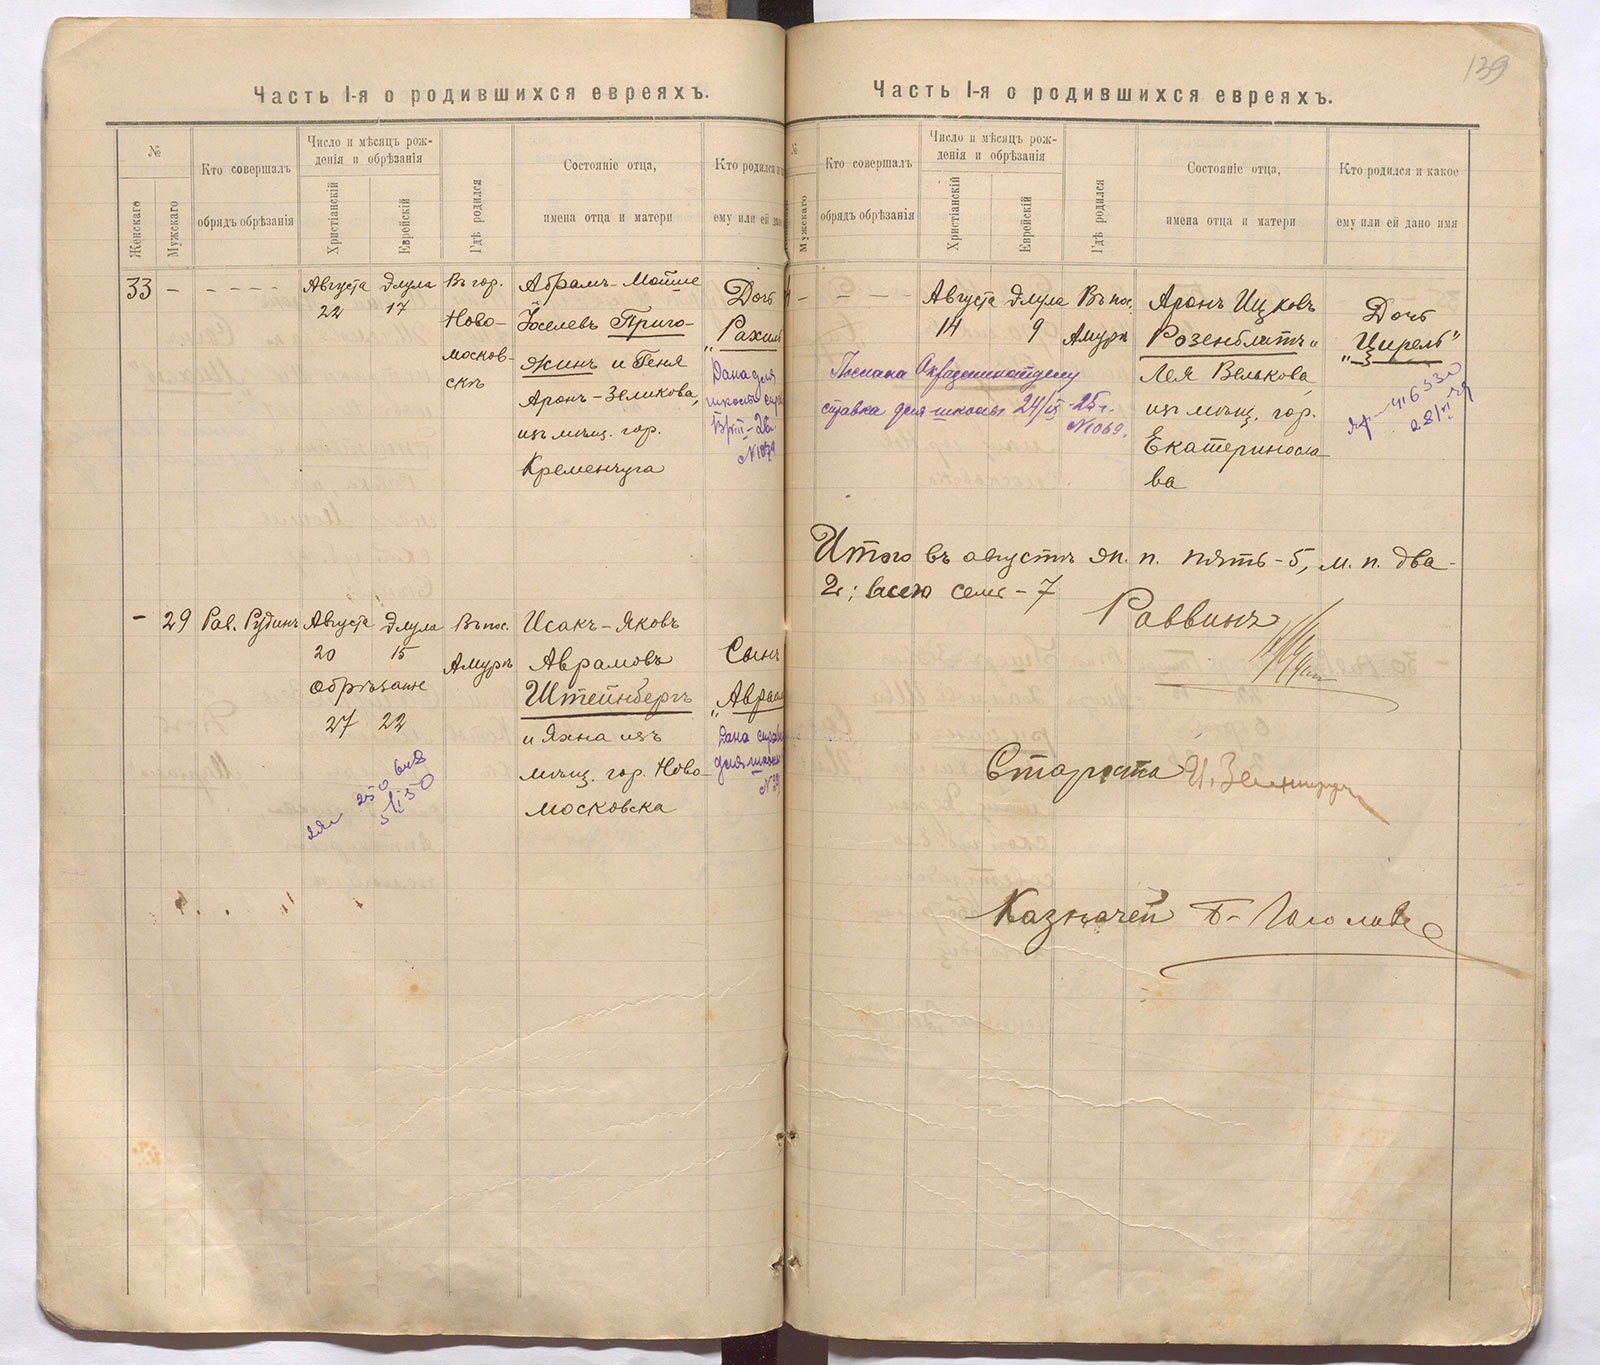 139
Часть I-я о родившихся евреяхъ.
№
Женскаго
Мужскаго
Кто совершалъ
обрядъ обрѣзанія
Число и мѣсяцъ рож-
денія и обрѣзанія
Христіанскій
Еврейскій
Гдѣ родился
Состояніе отца,
имена отца и матери
Кто родился и
ему или ей дано
33
-
- - - - -
Августа
22
Элула
17
Въ гор.
Ново-
москов-
скѣ
Абрамъ-Мойше
Іоселевъ Приго-
жинъ и Геня
Аронъ-Зеликова,
изъ мѣщ. гор.
Кременчуга
Дочь
„Рахиль
Дана для
№1079
-
29
Рав. Рудинъ
Августа
20
обрѣзанie
27
Элула
15
22
Въ пос.
Амуръ
Исакъ-Яковъ
Аврамовъ
Штейнбергъ
и Яхна изъ
мѣщ. гор. Ново-
московска
Сынъ
„Авраам
Дана справка
для школы
Часть I-я о родившихся евреяхъ.
№
Мужскаго
Кто совершалъ
обрядъ обрѣзанія
Число и мѣсяцъ рож-
денія и обрѣзанія
Христіанскій
Еврейскій
Гдѣ родился
Состояніе отца,
имена отца и матери
Кто родился и какое
ему или ей дано имя
-
- - -
Августа
14
Элула
9
Въ пос.
Амуръ
Аронъ Ицковъ
Розенблатъ и
Лея Велькова,
изъ мѣщ. гор.
Екатериносла-
ва
Дочь
„Цирель"
справка для школы 24/IX-25г.
№1069.
Итого въ августѣ ж. п. пять-5, м. п. два-
2; всего семь-7
Раввинъ
Староста
Казначей